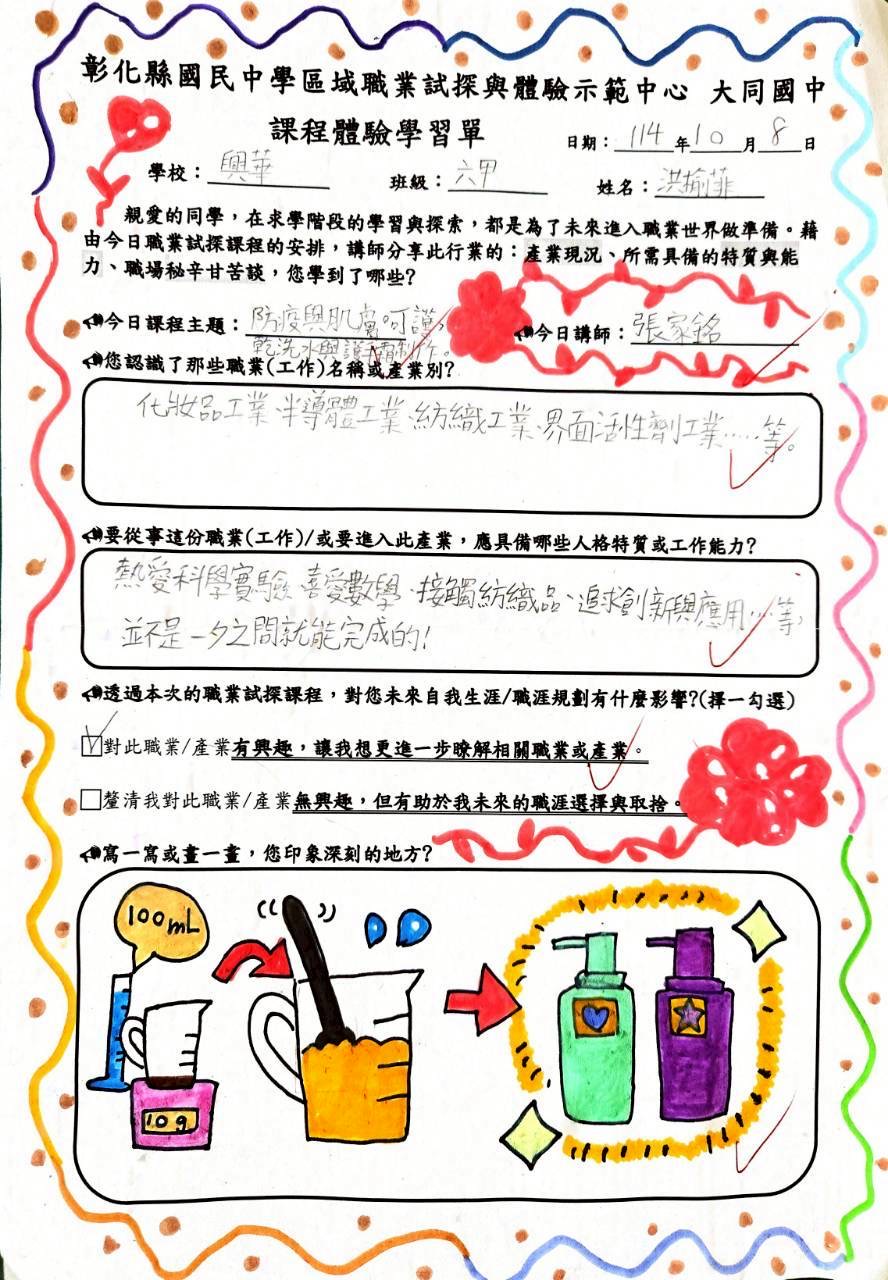 彰化縣國民中學區域職業試探與體驗示範中心 大同國中
課程體驗學習單
日期：114年10月8日
學校：興華 班級：六甲 姓名：洪揄菲
親愛的同學，在求學階段的學習與探索，都是為了未來進入職業世界做準備。藉
由今日職業試探課程的安排，講師分享此行業的：產業現況、所需具備的特質與能
力、職場秘辛甘苦談，您學到了哪些？
今日課程主題：防疫與肌膚呵護， 今日講師：張家銘
乾洗水與護霜制作。
您認識了那些職業(工作)名稱或產業別？
化妝品工業、半導體工業、紡織工業、界面活性劑工業……等。
要從事這份職業(工作)/或要進入此產業，應具備哪些人格特質或工作能力？
熱愛科學實驗、喜愛數學、接觸紡織品、追求創新與應用…等，
並不是一夕之間就能完成的！
透過本次的職業試探課程，對您未來自我生涯/職涯規劃有什麼影響？(擇一勾選)
☑對此職業/產業有興趣，讓我想更進一步瞭解相關職業或產業。
□釐清我對此職業/產業無興趣，但有助於我未來的職涯選擇與取捨。
寫一寫或畫一畫，您印象深刻的地方？
100mL
10g